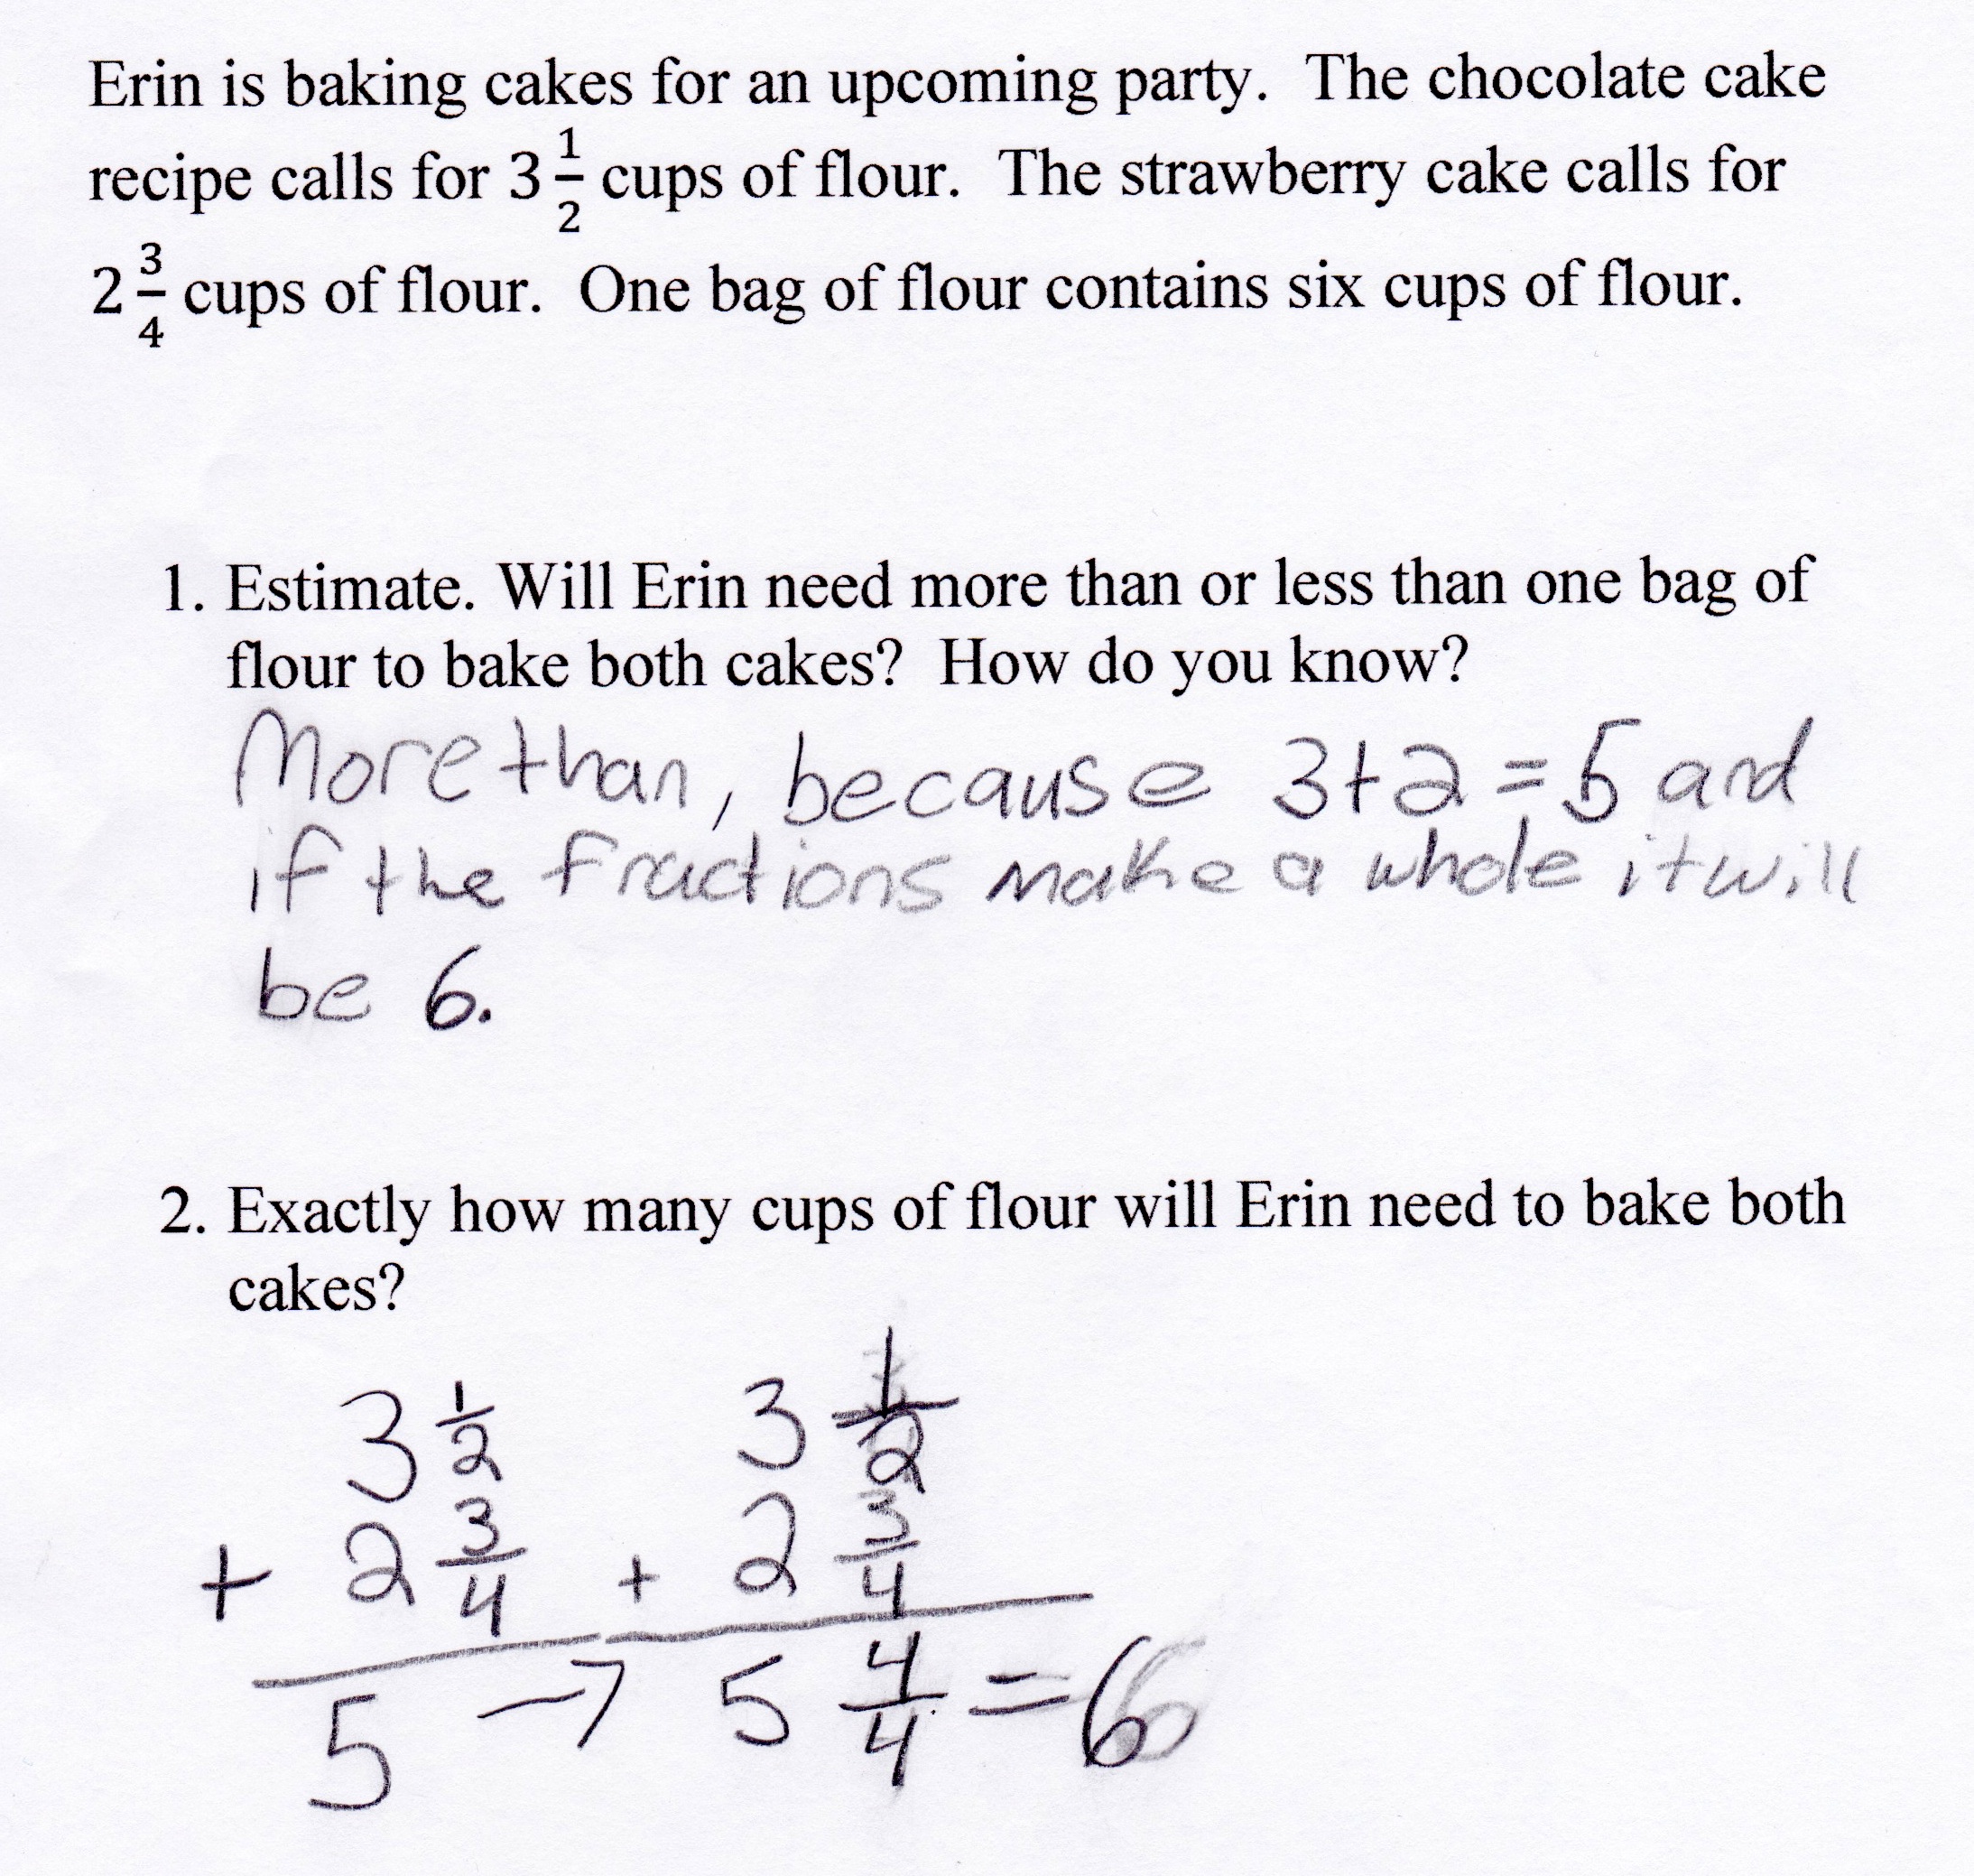 Erin is baking cakes for an upcoming party. The chocolate cake
recipe calls for 3 1/2 cups of flour. The strawberry cake calls for
2 3/4 cups of flour. One bag of flour contains six cups of flour.
1. Estimate. Will Erin need more than or less than one bag of
flour to bake both cakes? How do you know?
More than, because 3+2=5 and
if the fractions make a whole it will
be 6.
2. Exactly how many cups of flour will Erin need to bake both
cakes?
3 1/2 3 1/2
+ 2 3/4 + 2 3/4
5 → 5 4/4 = 6